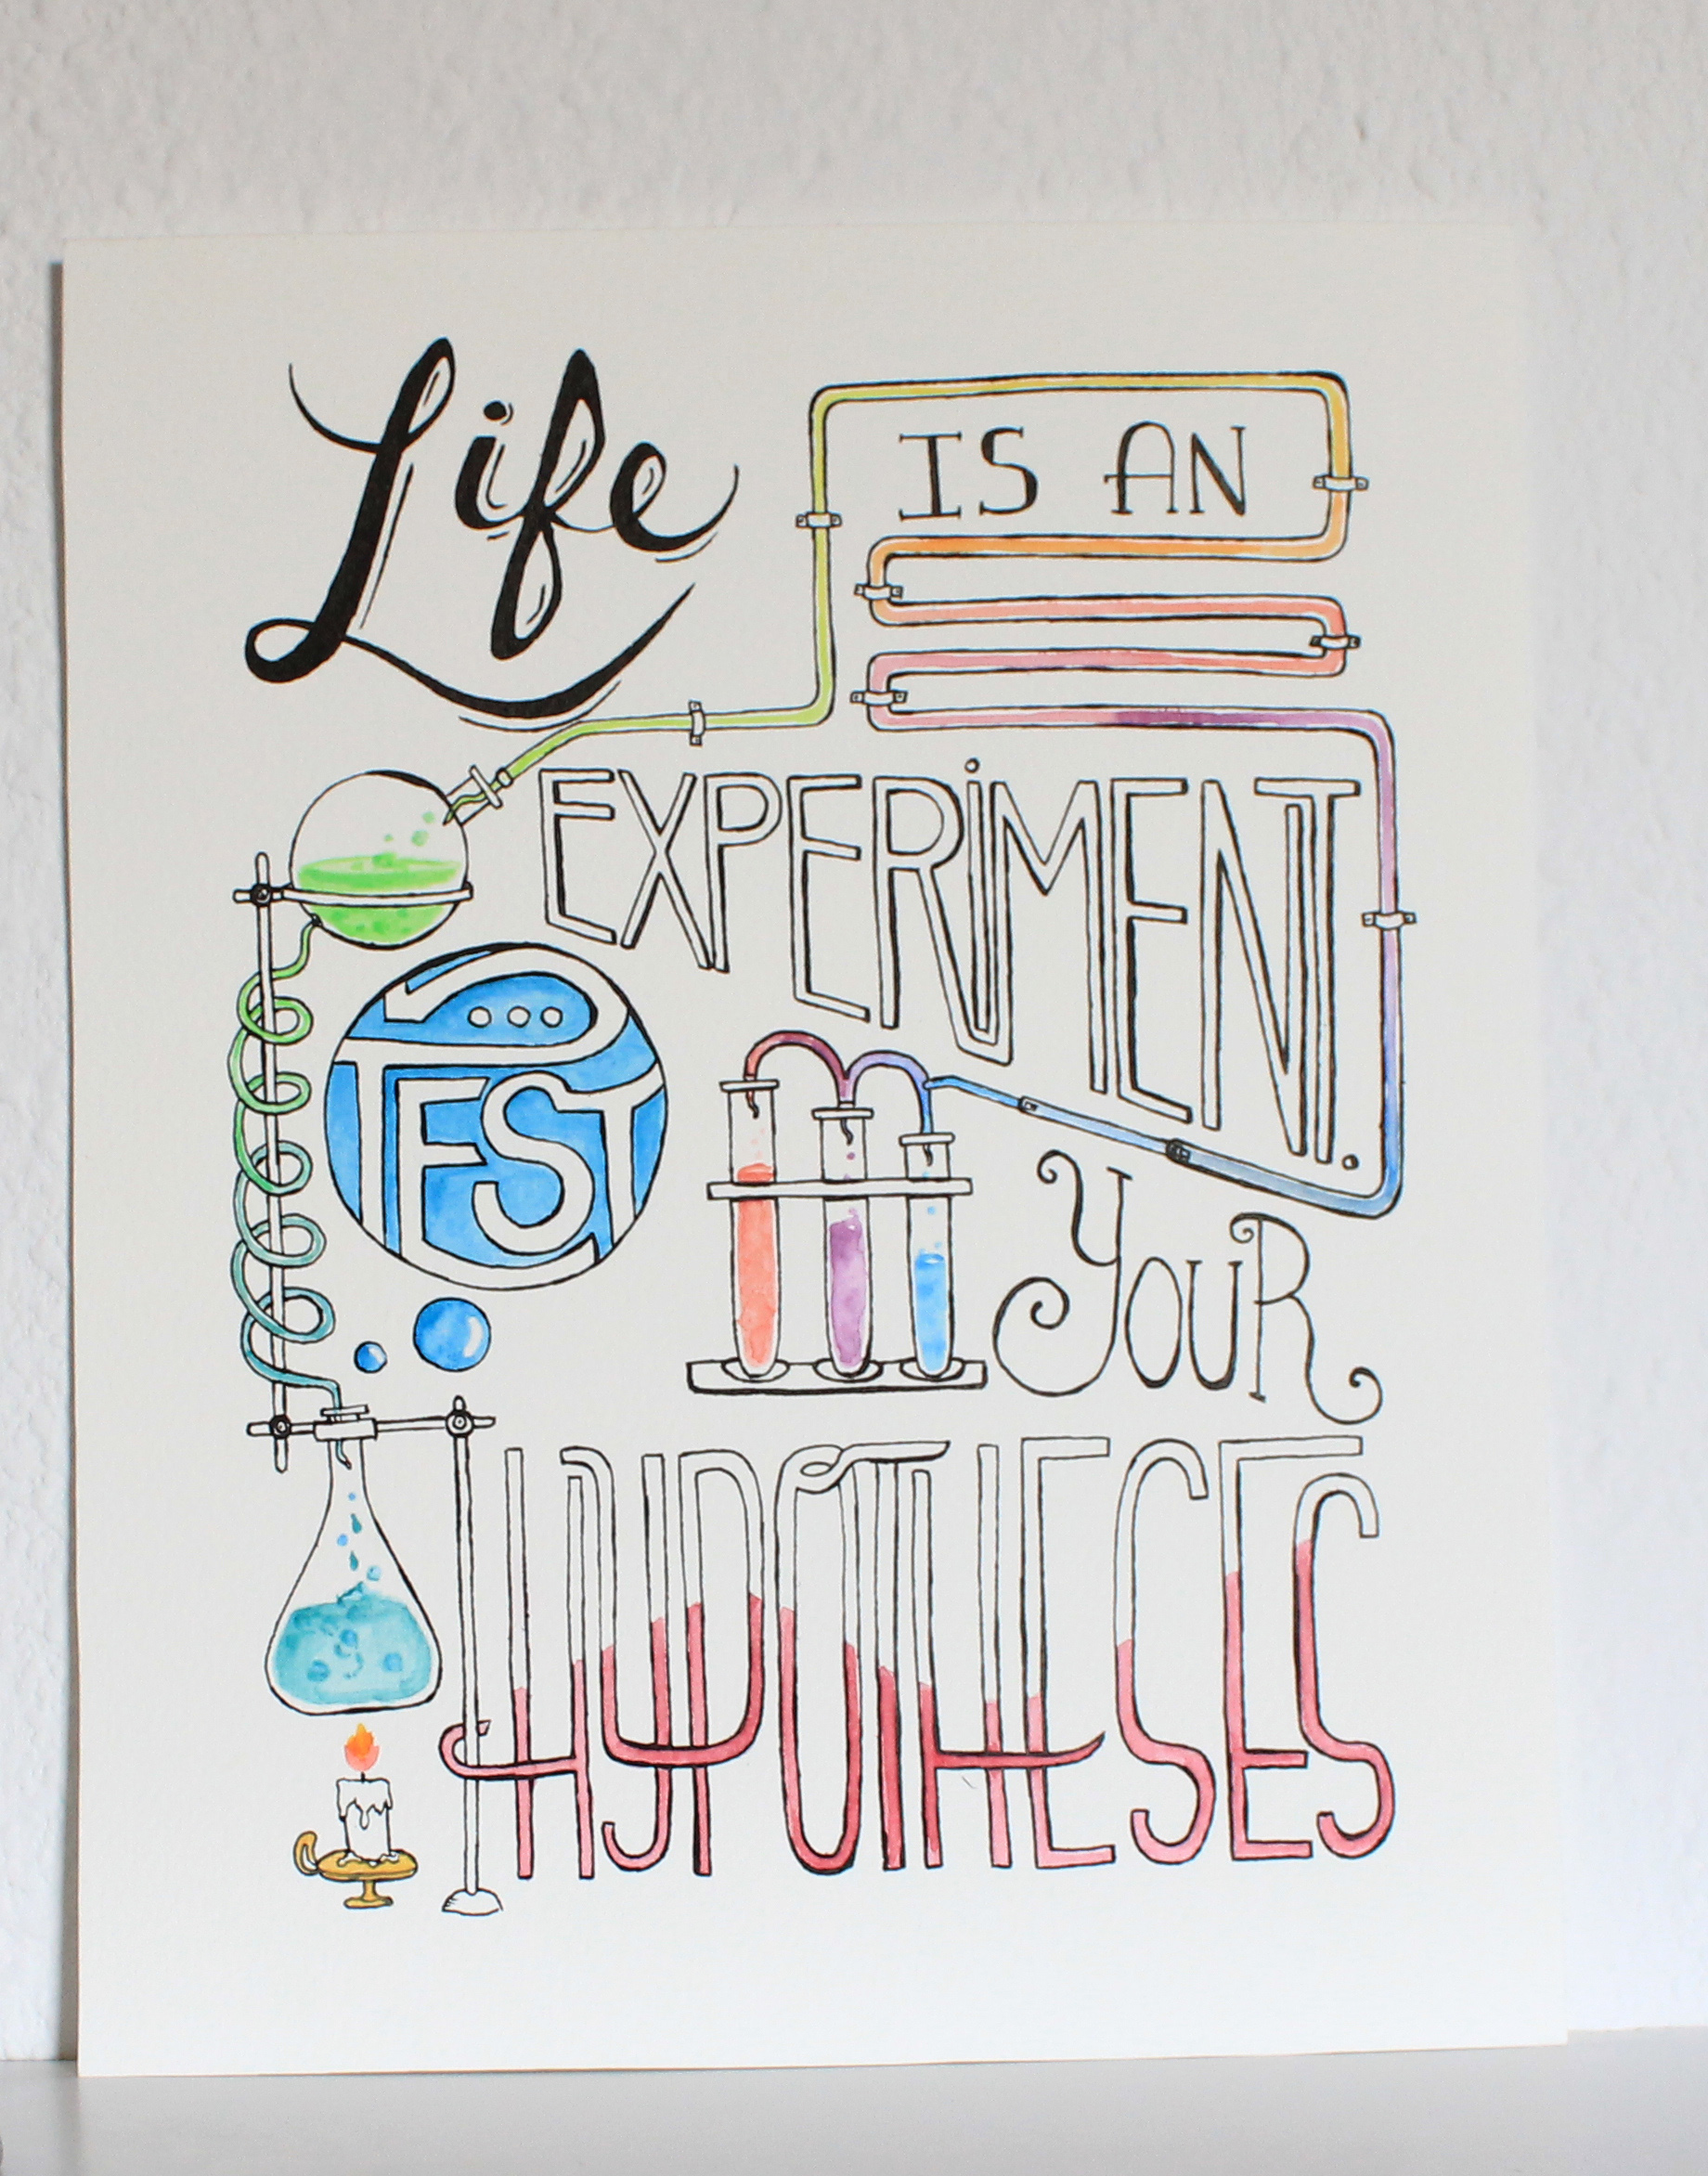 Life IS AN
EXPERIMENT.
TEST YOUR
HYPOTHESES